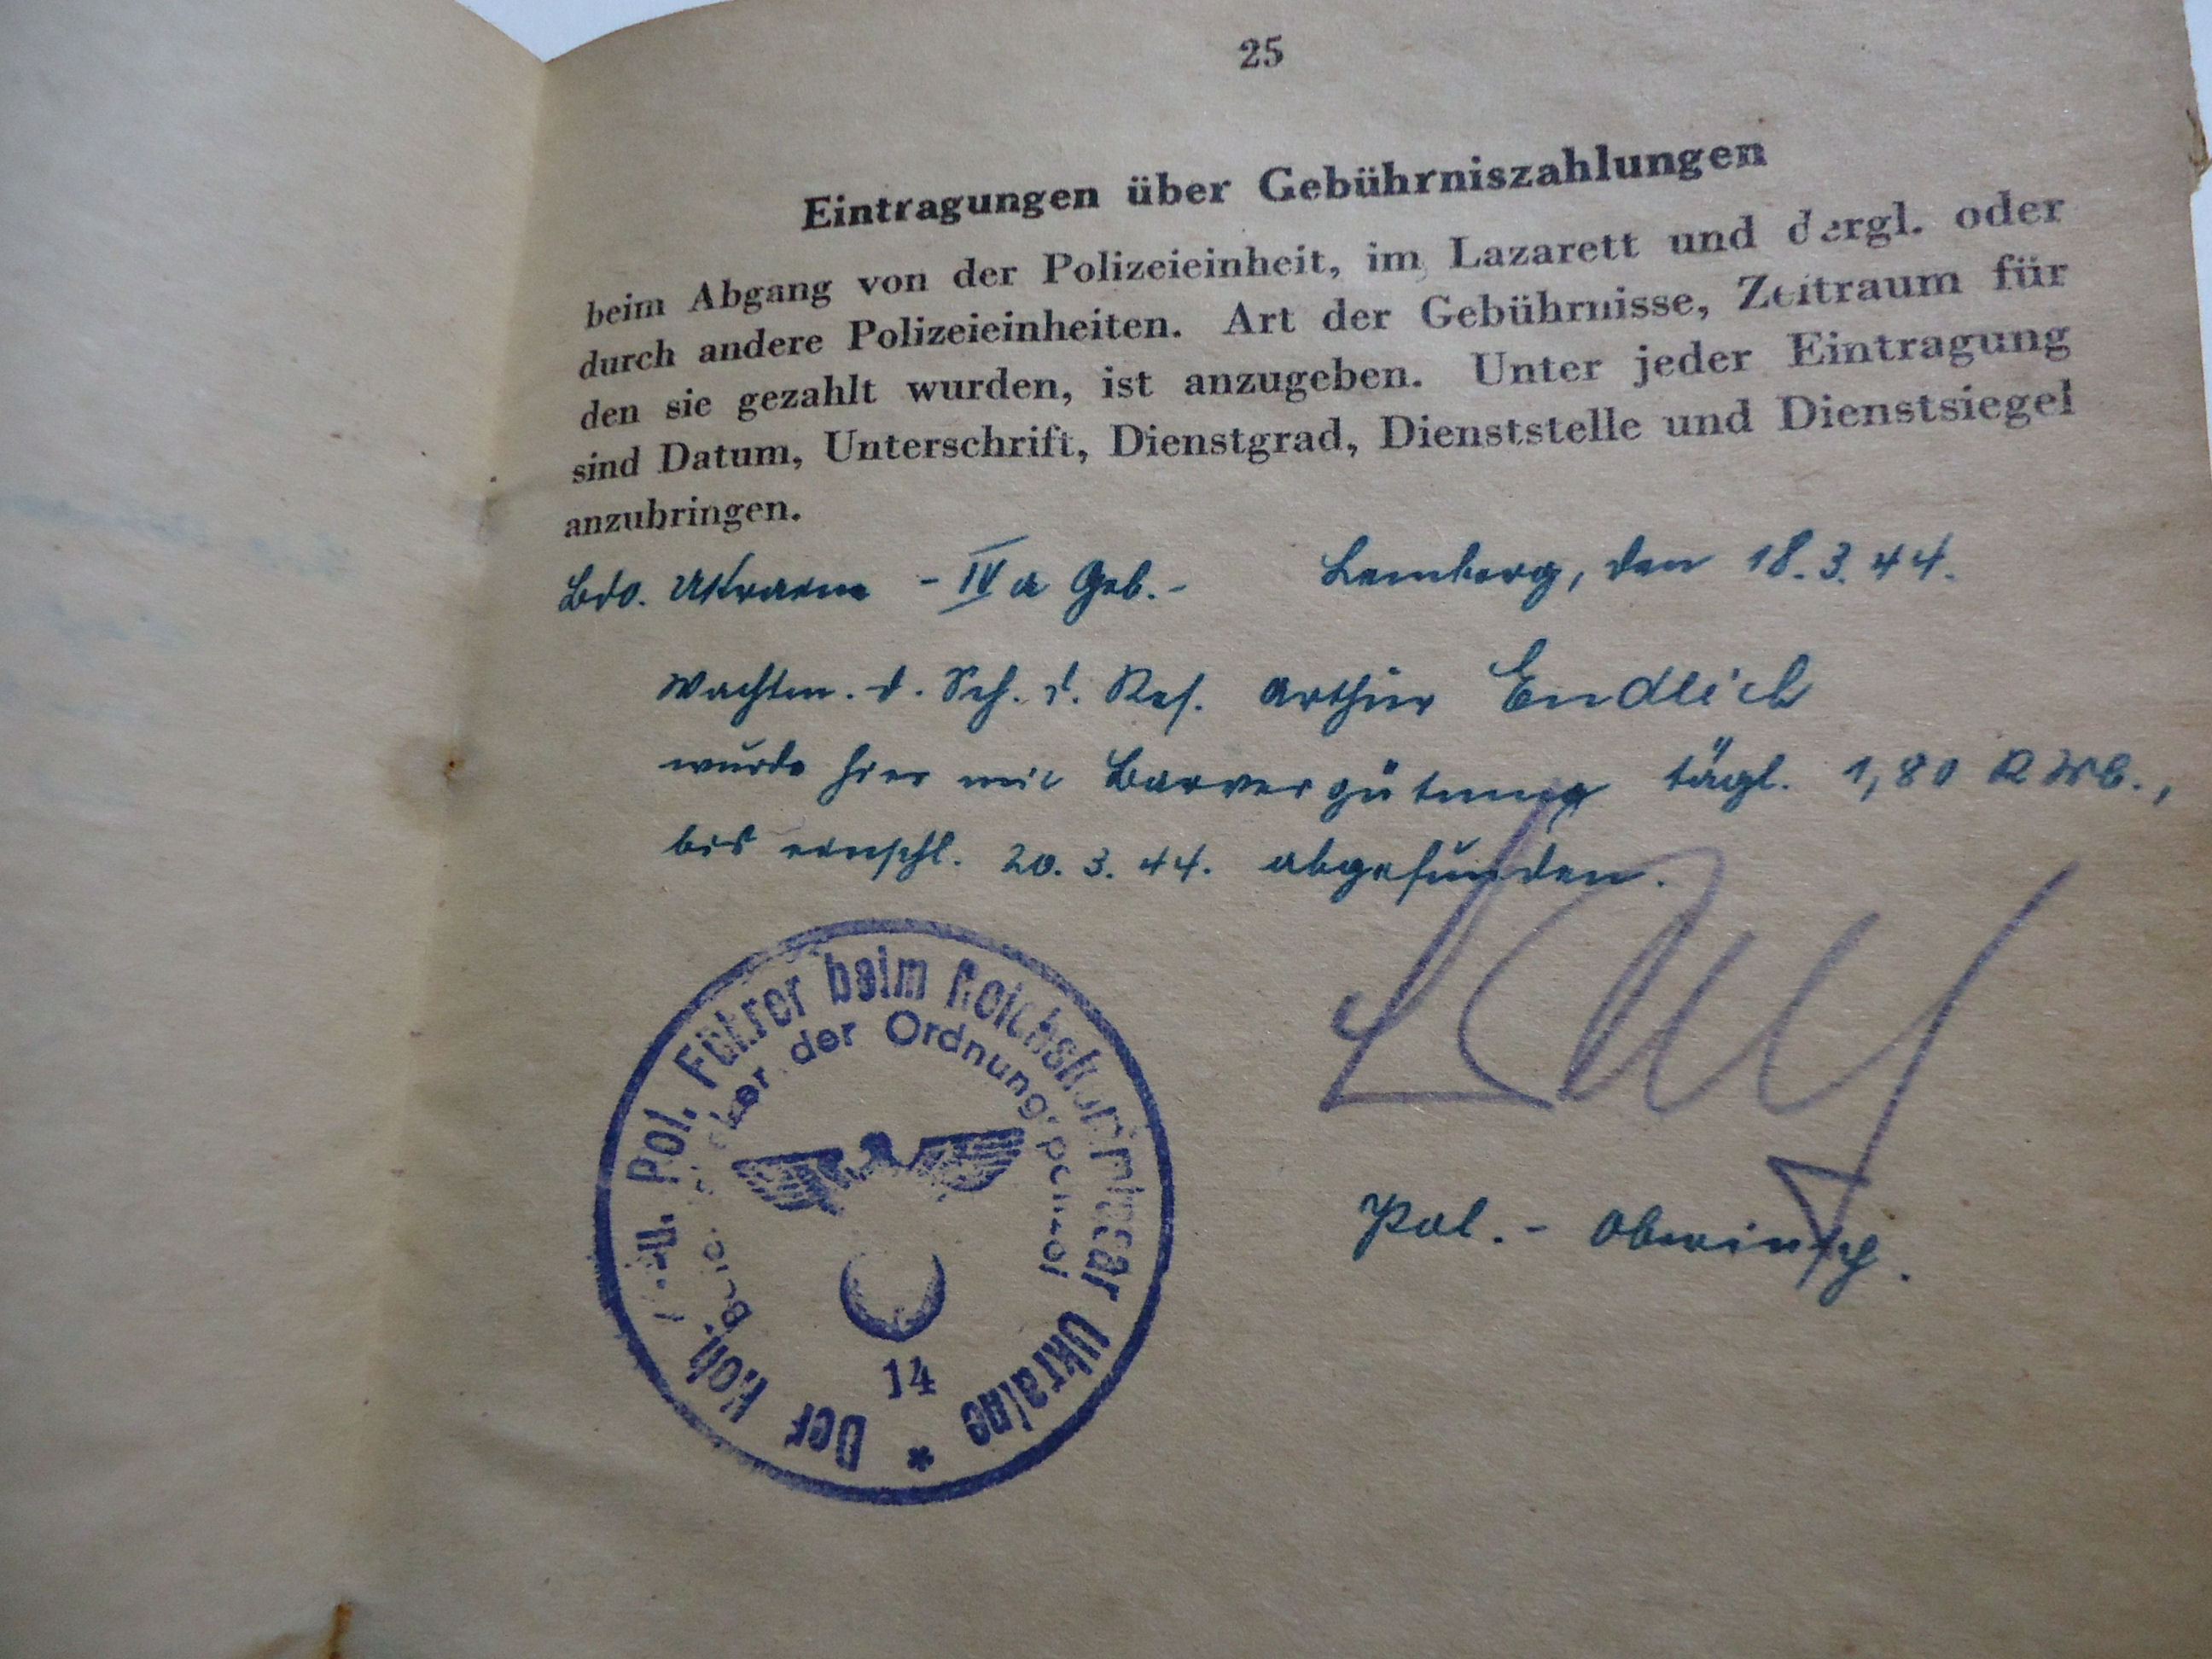 25
Eintragungen über Gebührniszahlungen
beim Abgang von der Polizeieinheit, im Lazarett und dergl. oder
durch andere Polizeieinheiten. Art der Gebührnisse, Zeitraum für
den sie gezahlt wurden, ist anzugeben. Unter jeder Eintragung
sind Datum, Unterschrift, Dienstgrad, Dienststelle und Dienstsiegel
anzubringen.
Bdo. Ukraine - IV a Geb. - Lemberg, den 18.3.44.
Wachtm. d. Sch. d. Res. Arthur Endlich
wurde hier mit Barvergütung tägl. 1,80
bis einschl. 20.3.44. abgefunden.
Der Höh. u. Pol. Führer beim Reichskommissar Ukraine *
der Ordnungspolizei
14
Pol. - Oberinsp.